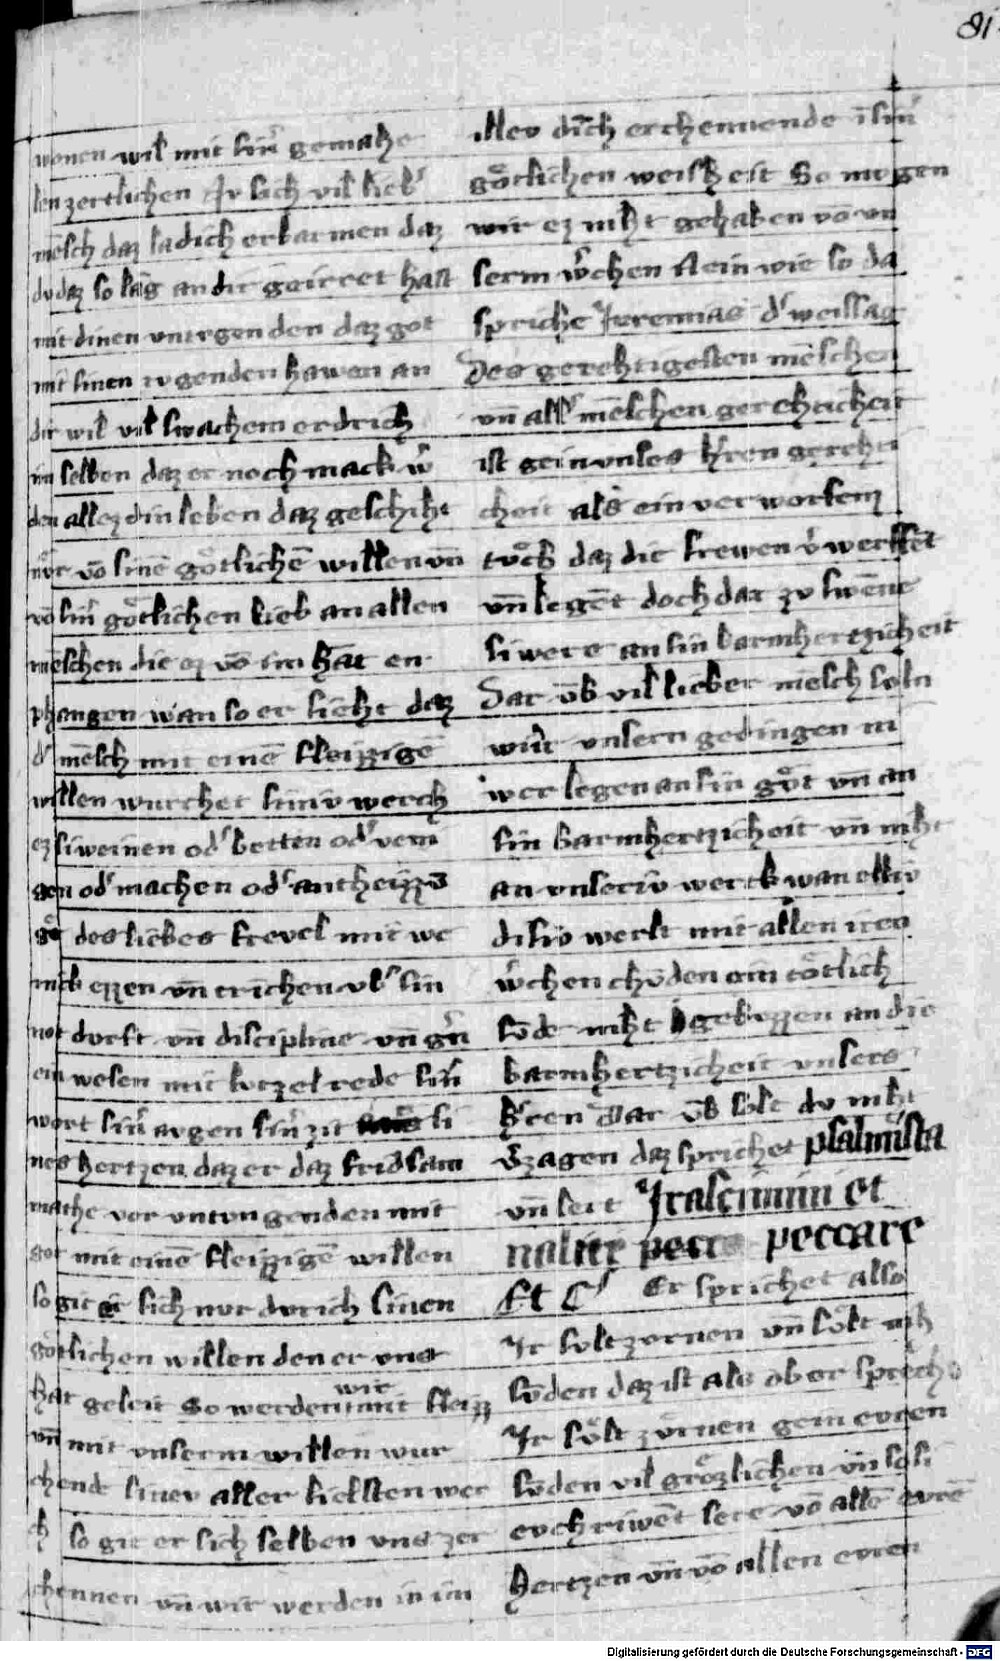 81
wonen wil mit sinr̄ gemahe
len zertlichen Jv sich vil liebʳ
mēsch daz la dich erbarmen daz
dv daz so lāg an dir geirret hast
mit dinen vntvgenden daz got
mit sinen tvgenden hawen an
dir wil vil swachem erdrich
im selben daz er noch mack w̄
den allez din leben daz geschiht
nv̊r vō sinē go̊tlichē willen vn̄
vō sinʳ go̊tlichen lieb an allen
mēschen die ez vō im hāt en
phangen wan so er sieht daz
dʳ mēsch mit einē fleizzigē
willen wurchet siniv werch
ez si weinen odʳ betten odʳ veni
gen odʳ machen odʳ antheizzē
des liebes frevel mit we
nick ezzen vn̄ trichen vbʳ sin
not dvrft vn̄ discipline vn̄
ein wesen mit lvtzel rede sinʳ
wort sinʳ avgen sinʳ zit si
nes hertzen daz er daz fridsam
mache vor vntvngenden mit
got mit einē fleizzigē willen
so git er sich nvr dvrich sinen
go̊tlichen willen den er vns
hat geleit So werden wir mit fleizz
vn̄ mit vnserm willen wur
chende siner aller liebsten wer
ch so git er sich selben vns zer
chennen vn̄ wir werden in im
aller dinch erchennende ī sinʳ
go̊tlichen weisheit So mvgen
wir ez niht gehaben vō vn
serm w̄chen alein wie so da
spriche Jeremias dʳ weissag
Des gerehtigesten mēschen
vn̄ allʳ mēschen gerehticheit
ist gein vnses hʳren gerehti
cheit als ein verworfem
tvo̊ch daz die frewen v̄werffēt
vn̄ legēt doch dar zv swēne
si were an sin barmhertzicheit
Dar vm̄b vil lieber mēsch soln
wir vnsern gedingen ni
wer legen an sin go̊t vn̄ an
sin barmhertzicheit vn̄ niht
an vnseriv werck wan elliv
disiv werlt mit allen iren
w̄chen chv̄den ein to̊tlich
sv̄de niht gebvzzen an die
barmhertzicheit vnsers
hʳren Dar vm̄b solt dv niht
v̄zagen daz sprichet psalmista
vn̄ seit Jrascimini et
nolite peccare
Et Cʳ Er sprichet also
Jr svlt zvrnen vn̄ so̊lt nih
sv̄den daz ist als ob er spreche
Jr so̊lt zvrnen gein evren
sv̄den vil gro̊zlichen vn̄ soli
evch riwēt sere vō allē evrē
hertzen vn̄ vō allen evren
Digitalisierung gefördert durch die Deutsche Forschungsgemeinschaft - DFG